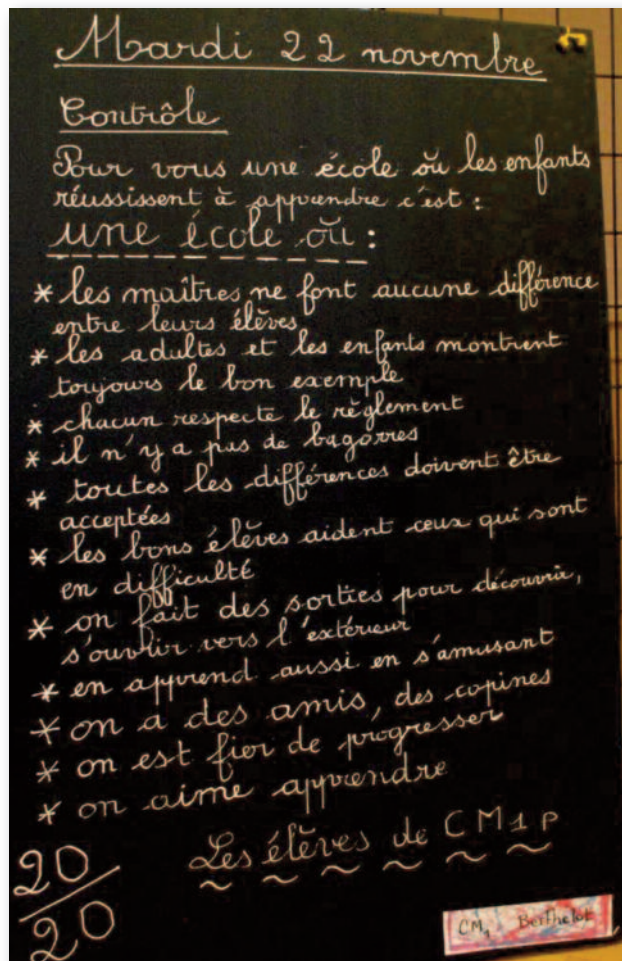 Mardi 22 novembre
Contrôle
Pour vous une école où les enfants
réussissent à apprendre c'est :
une école où :
* les maîtres ne font aucune différence
entre leurs élèves
* les adultes et les enfants montrent
toujours le bon exemple
* chacun respecte le règlement
* il n'y a pas de bagarres
* toutes les différences doivent être
acceptées
* les bons élèves aident ceux qui sont
en difficulté
* on fait des sorties pour découvrir,
s'ouvrir vers l'extérieur
* en apprend aussi en s'amusant
* on a des amis, des copines
* on est fier de progresser
* on aime apprendre
Les élèves de CM1 P
20
20
CM1 Berthelot